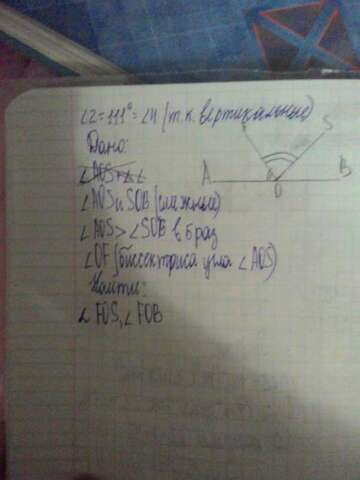 ∠2=111°=∠4 (т.к. вертикальные)
Дано:
∠AOS+∠∠
∠AOS и SOB (смежные)
∠AOS>∠SOB в 5 раз
∠OF (биссектриса угла ∠AOS)
Найти:
∠FOS, ∠FOB
S
A
O
B